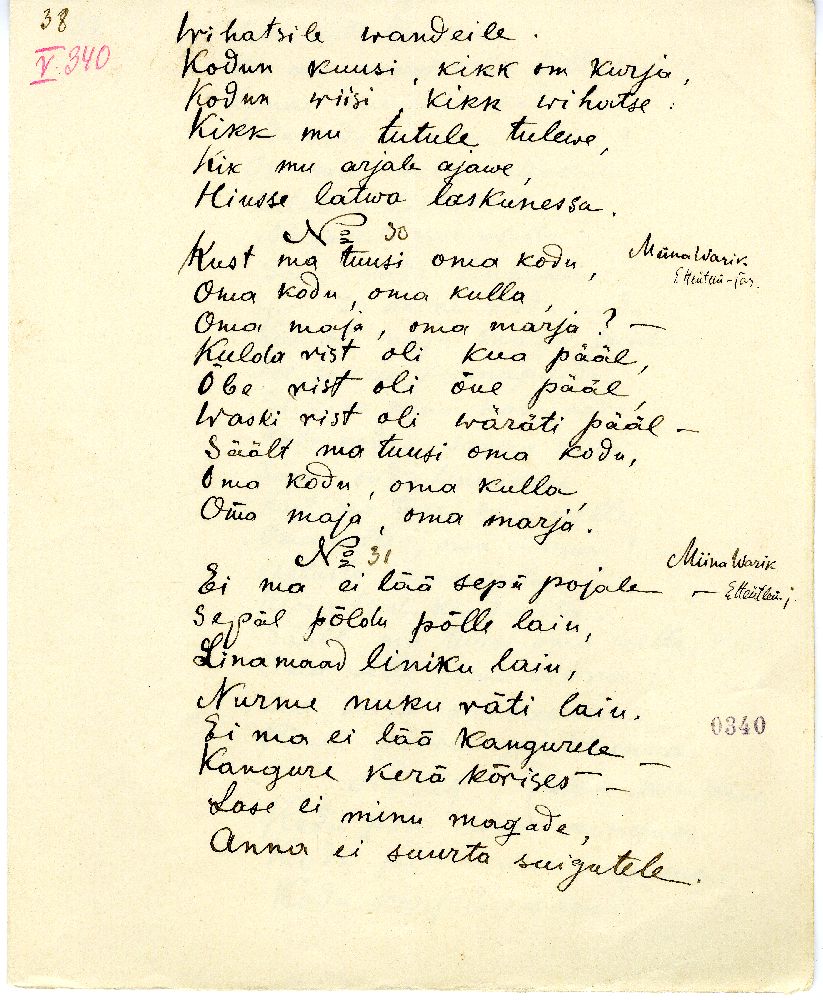 38
V 340
Wihatsile wandeile.
Kodun kuusi, kikk om kurja,
Kodun wiisi, kikk wihatse:
Kikk mu tutule tulewe,
Kik mu arjale ajawe,
Hiusse latwa laskunessa.
No 30
Kust ma tuusi oma kodu, Miina Warik
Oma kodu, oma kulla,
Oma maja, oma marja? —
Kulda rist oli kua pääl,
Õbe rist oli õue pääl,
Waski rist oli wäräti pääl —
Säält ma tuusi oma kodu,
Oma kodu, oma kulla,
Oma maja, oma marja.
No 31
Ei ma ei lää sepü pojale — Miina Warik
Sepäl põldu põlle laiu,
Linamaad liniku laiu,
Nurme nuku räti laiu.
Ei ma ei lää kangurele —
Kangure kerä kõrises —
Lase ei minu magade,
Anna ei suurta suigutele.
0340